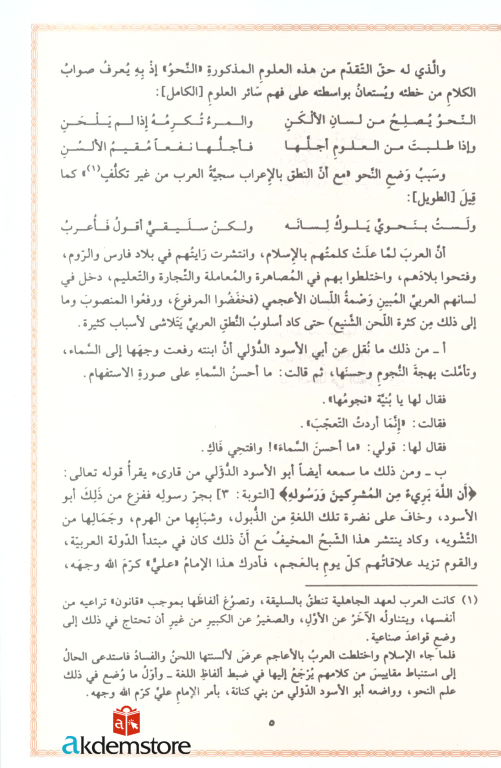 والَّذي له حقّ التّقدّم من هذه العلومِ المذكورةِ «النّحوُ» إذْ بِهِ يُعرفُ صوابُ
الكلامِ من خطئه ويُستعانُ بواسطته على فهم سَائر العلوم [الكامل]:
النّحوُ يُصلِحُ من لسانِ الألْكَنِ والمرءُ تُكرِمُهُ إذا لم يَلْحَنِ
وإذا طلبتَ من العلومِ أجلَّها فأجلُّها نفعاً مُقيمُ الألسُنِ
وسَببُ وَضعِ النَّحو «مع أنّ النطق بالإعراب سجيَّةُ العرب من غير تكلّفٍ(١)» كما
قِيلَ [الطويل]:
ولَستُ بنَحويٍّ يَلوكُ لِسانَه ولكنْ سلَيقيٌّ أقولُ فَأُعربُ
أنّ العربَ لمّا علَتْ كلمتُهم بالإسلام، وانتشرت رَايتُهم في بلاد فارس والرّوم،
وفتحوا بلادَهم، واختلطوا بهم في المُصاهرة والمُعاملة والتّجارة والتّعليم، دخل في
لسانهم العربيِّ المُبينِ وَصْمةُ اللِّسان الأعجمي (فخفَضُوا المرفوعَ، ورفعُوا المنصوبَ وما
إلى ذلك مِن كثرة اللّحن الشَّنيع) حتى كاد أسلوبُ النُّطقِ العربيِّ يَتَلاشى لأسباب كثيرة.
أ ـ من ذلك ما نُقل عن أبي الأسود الدُّؤلي أنّ ابنته رفعت وجهَها إلى السَّماء،
وتأمَّلت بهجةَ النُّجوم وحسنَها، ثم قالت: ما أحسنُ السَّماءِ على صورةِ الاستفهام.
فقال لها يا بُنيَّة «نجومُها».
فقالت: «إنَّمَا أردتُ التّعجّبَ».
فقال لها: قولي: «ما أحسنَ السَّماءَ»! وافتحِي فَاكِ.
ب ـ ومن ذلك ما سمعه أيضاً أبو الأسود الدُّؤَلي من قارىء يقرأُ قوله تعالى:
﴿أَن اللَّهَ بَرِيءٌ مِن المُشرِكينَ وَرَسُولِهِ﴾ [التوبة: ٣] بجرّ رسولِه ففزع من ذَلِكَ أبو
الأسود، وخافَ على نضرة تلك اللغةِ من الذُّبول، وشبَابِها من الهرمِ، وجَمَالِها من
التَّشْويه، وكاد ينتشر هذا الشَّبحُ المخيفُ مَع أنَّ ذلك كان في مبتدأ الدّولة العربيّة،
والقوم تزيد علاقاتُهم كلّ يوم بالعَجم، فأدرك هذا الإمامُ «عليٌّ» كرّمَ الله وجهَه،
(١) كانت العرب لعهدِ الجاهلية تنطقُ بالسليقة، وتصوُغ ألفاظَها بموجب «قانون» تراعيه من
أنفسها، ويتناولُه الآخَرُ عن الأوَّلِ، والصغيرُ عن الكبيرِ من غيرِ أن تحتاج في ذلك إلى
وضعِ قواعدَ صناعية.
فلما جاء الإسلام واختلطت العربُ بالأعاجم عرضَ لألسنتها اللحنُ والفسادُ فاستدعى الحالُ
إلى استنباط مقاييسَ من كلامهم يُرْجَعُ إليها في ضبط ألفاظِ اللغة ـ وأوّلُ ما وُضع في ذلك
علم النحو، وواضعه أبو الأسود الدُؤلي من بني كنانة، بأمرِ الإمام عليّ كرّم الله وجهه.
٥
akdemstore